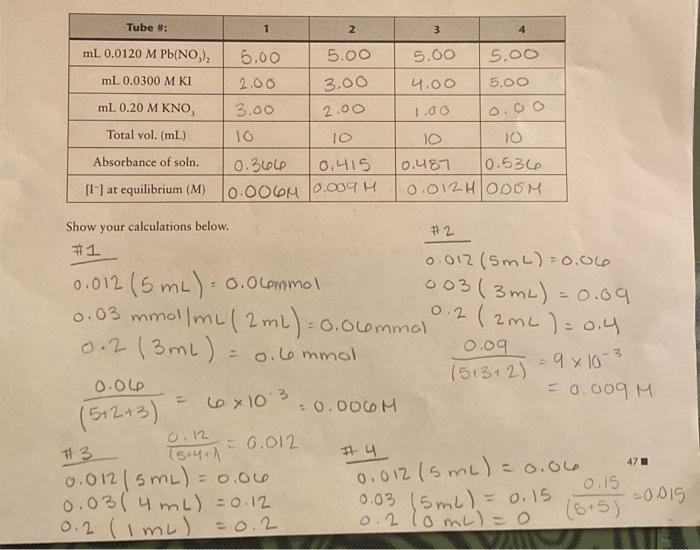 Tube #: 1 2 3 4
mL 0.0120 M Pb(NO₃)₂ 5.00 5.00 5.00 5.00
mL 0.0300 M KI 2.00 3.00 4.00 5.00
mL 0.20 M KNO₃ 3.00 2.00 1.00 0.00
Total vol. (mL) 10 10 10 10
Absorbance of soln. 0.366 0.415 0.487 0.536
[I⁻] at equilibrium (M) 0.006M 0.009 M 0.012M
Show your calculations below.
#1
0.012 (5 mL) = 0.06mmol
0.03 mmol/mL (2mL) = 0.06mmol
0.2 (3mL) = 0.6 mmol
0.06
(5+2+3) = 6 x 10⁻³ = 0.006M
#2
0.012 (5mL) = 0.06
0.03 (3mL) = 0.09
0.2 (2mL) = 0.4
0.09
(5+3+2) = 9 x 10⁻³
= 0.009 M
#3
0.12
= 0.012
0.012 (5mL) = 0.06
0.03 (4mL) = 0.12
0.2 (1mL) = 0.2
#4
0.012 (5mL) = 0.06
0.03 (5mL) = 0.15
0.2 (0mL) = 0
0.15
(5+5) = 0.015
47